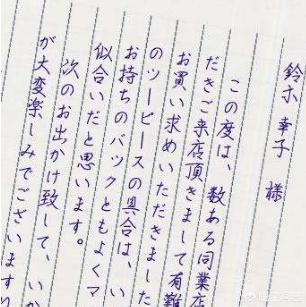 鈴木 幸子 様
この度は、数ある同業店
だきご来店頂きまして有難
お買い求めいただきました
のツーピースの具合は、い
お持ちのバックともよくマ
似合いだと思います。
次のお出かけ致して、いか
が大変楽しみでございます